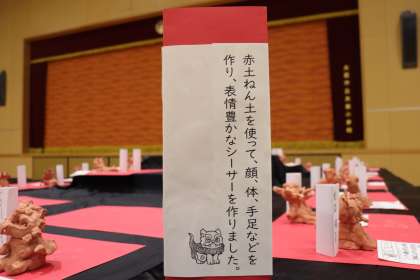 赤土ねん土を使って、顔、体、手足などを
作り、表情豊かなシーサーを作りました。